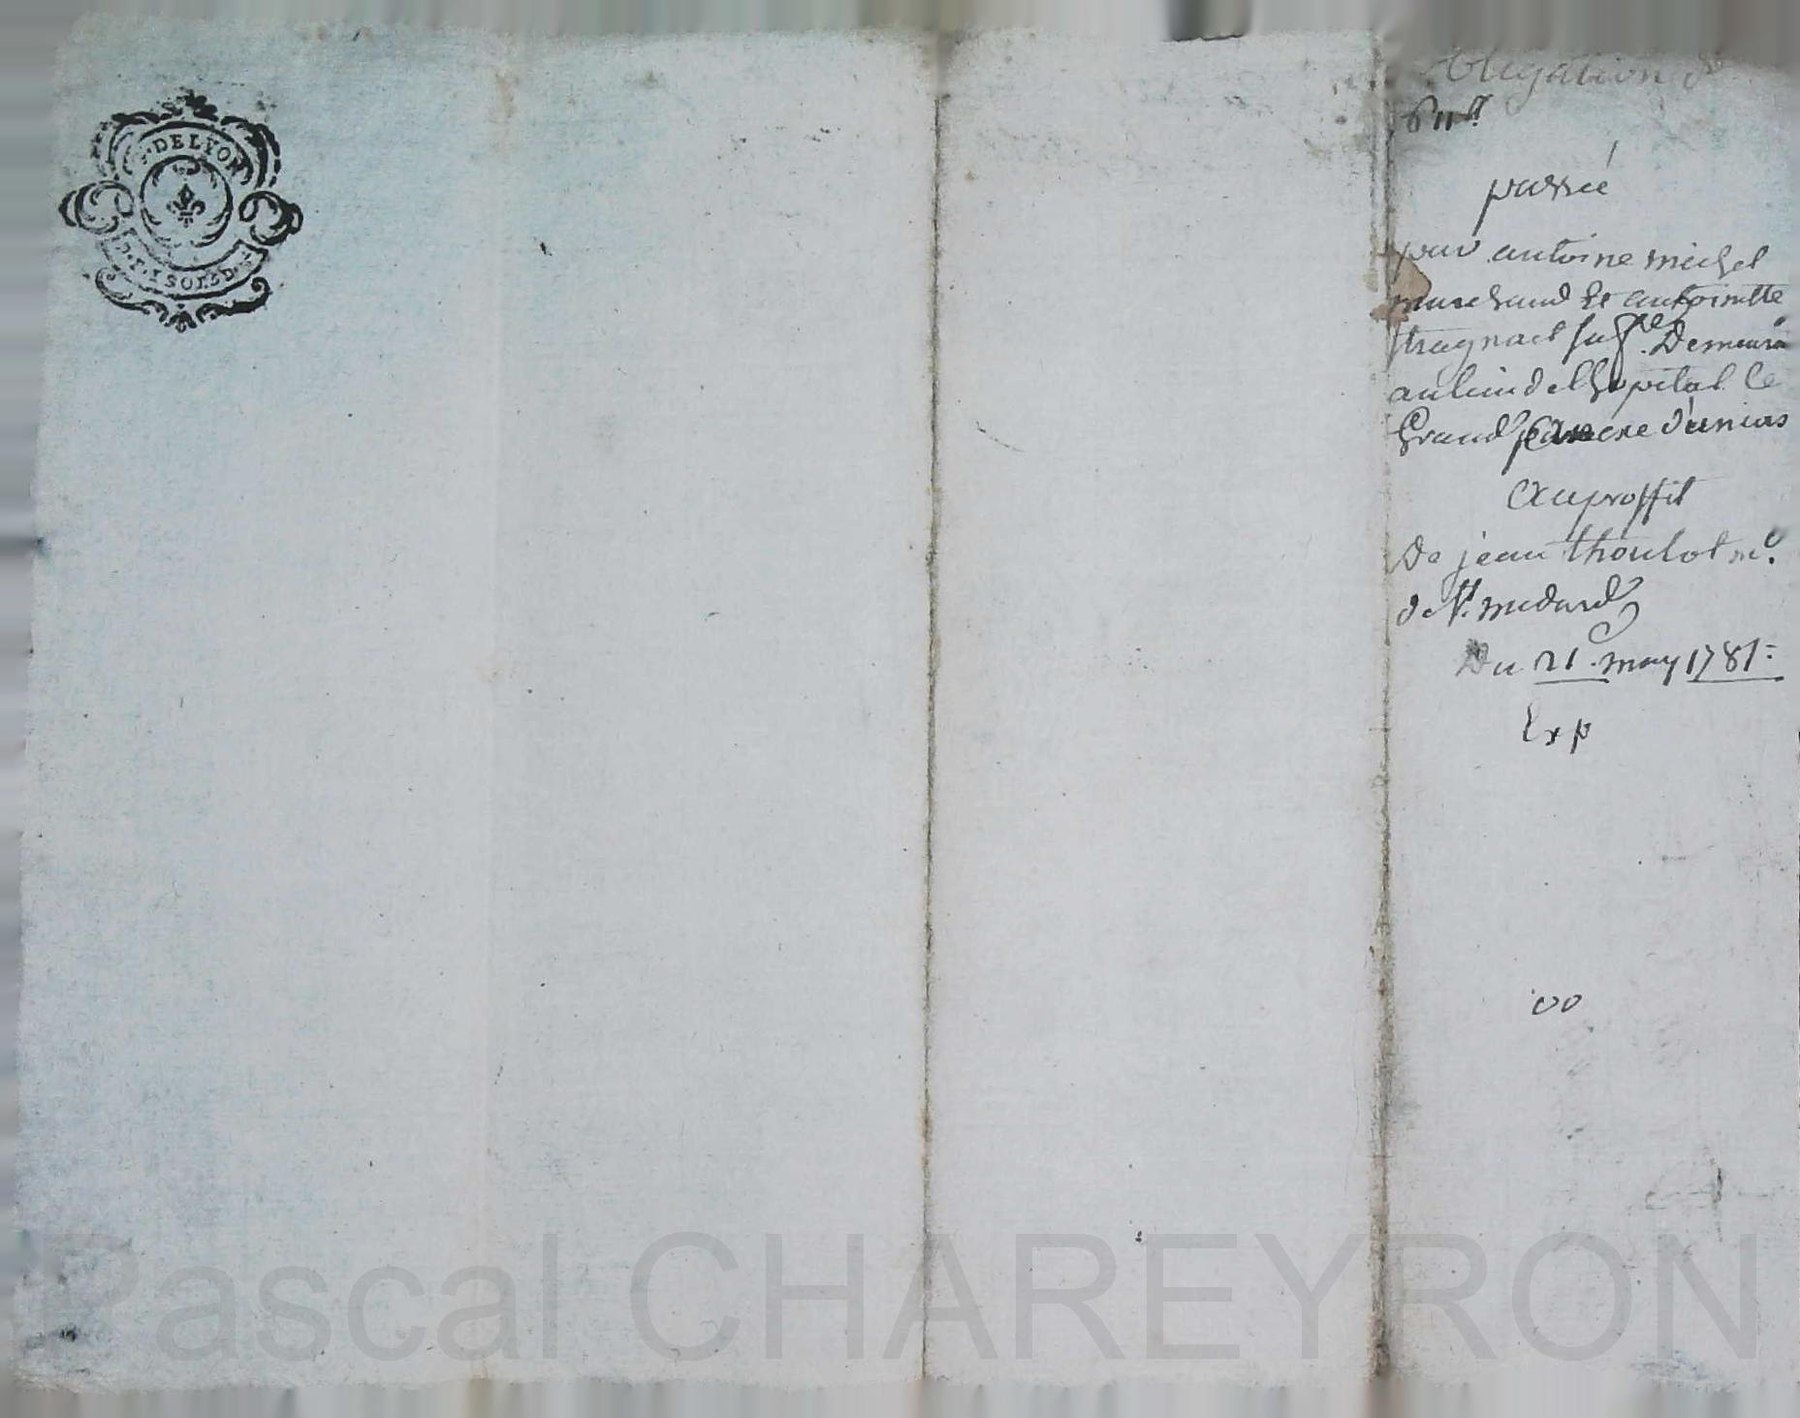 G. DE LYON
D. P. 1 SOL 8 D.
obligation de
passée
par antoine michel
marchand et antoinette
sa fe. Demeurt
au lieu de lhopital le
Grand
Au proffit
De jean thoulot md.
de St. medard
Du 21 may 1781
Exp
00
Pascal CHAREYRON